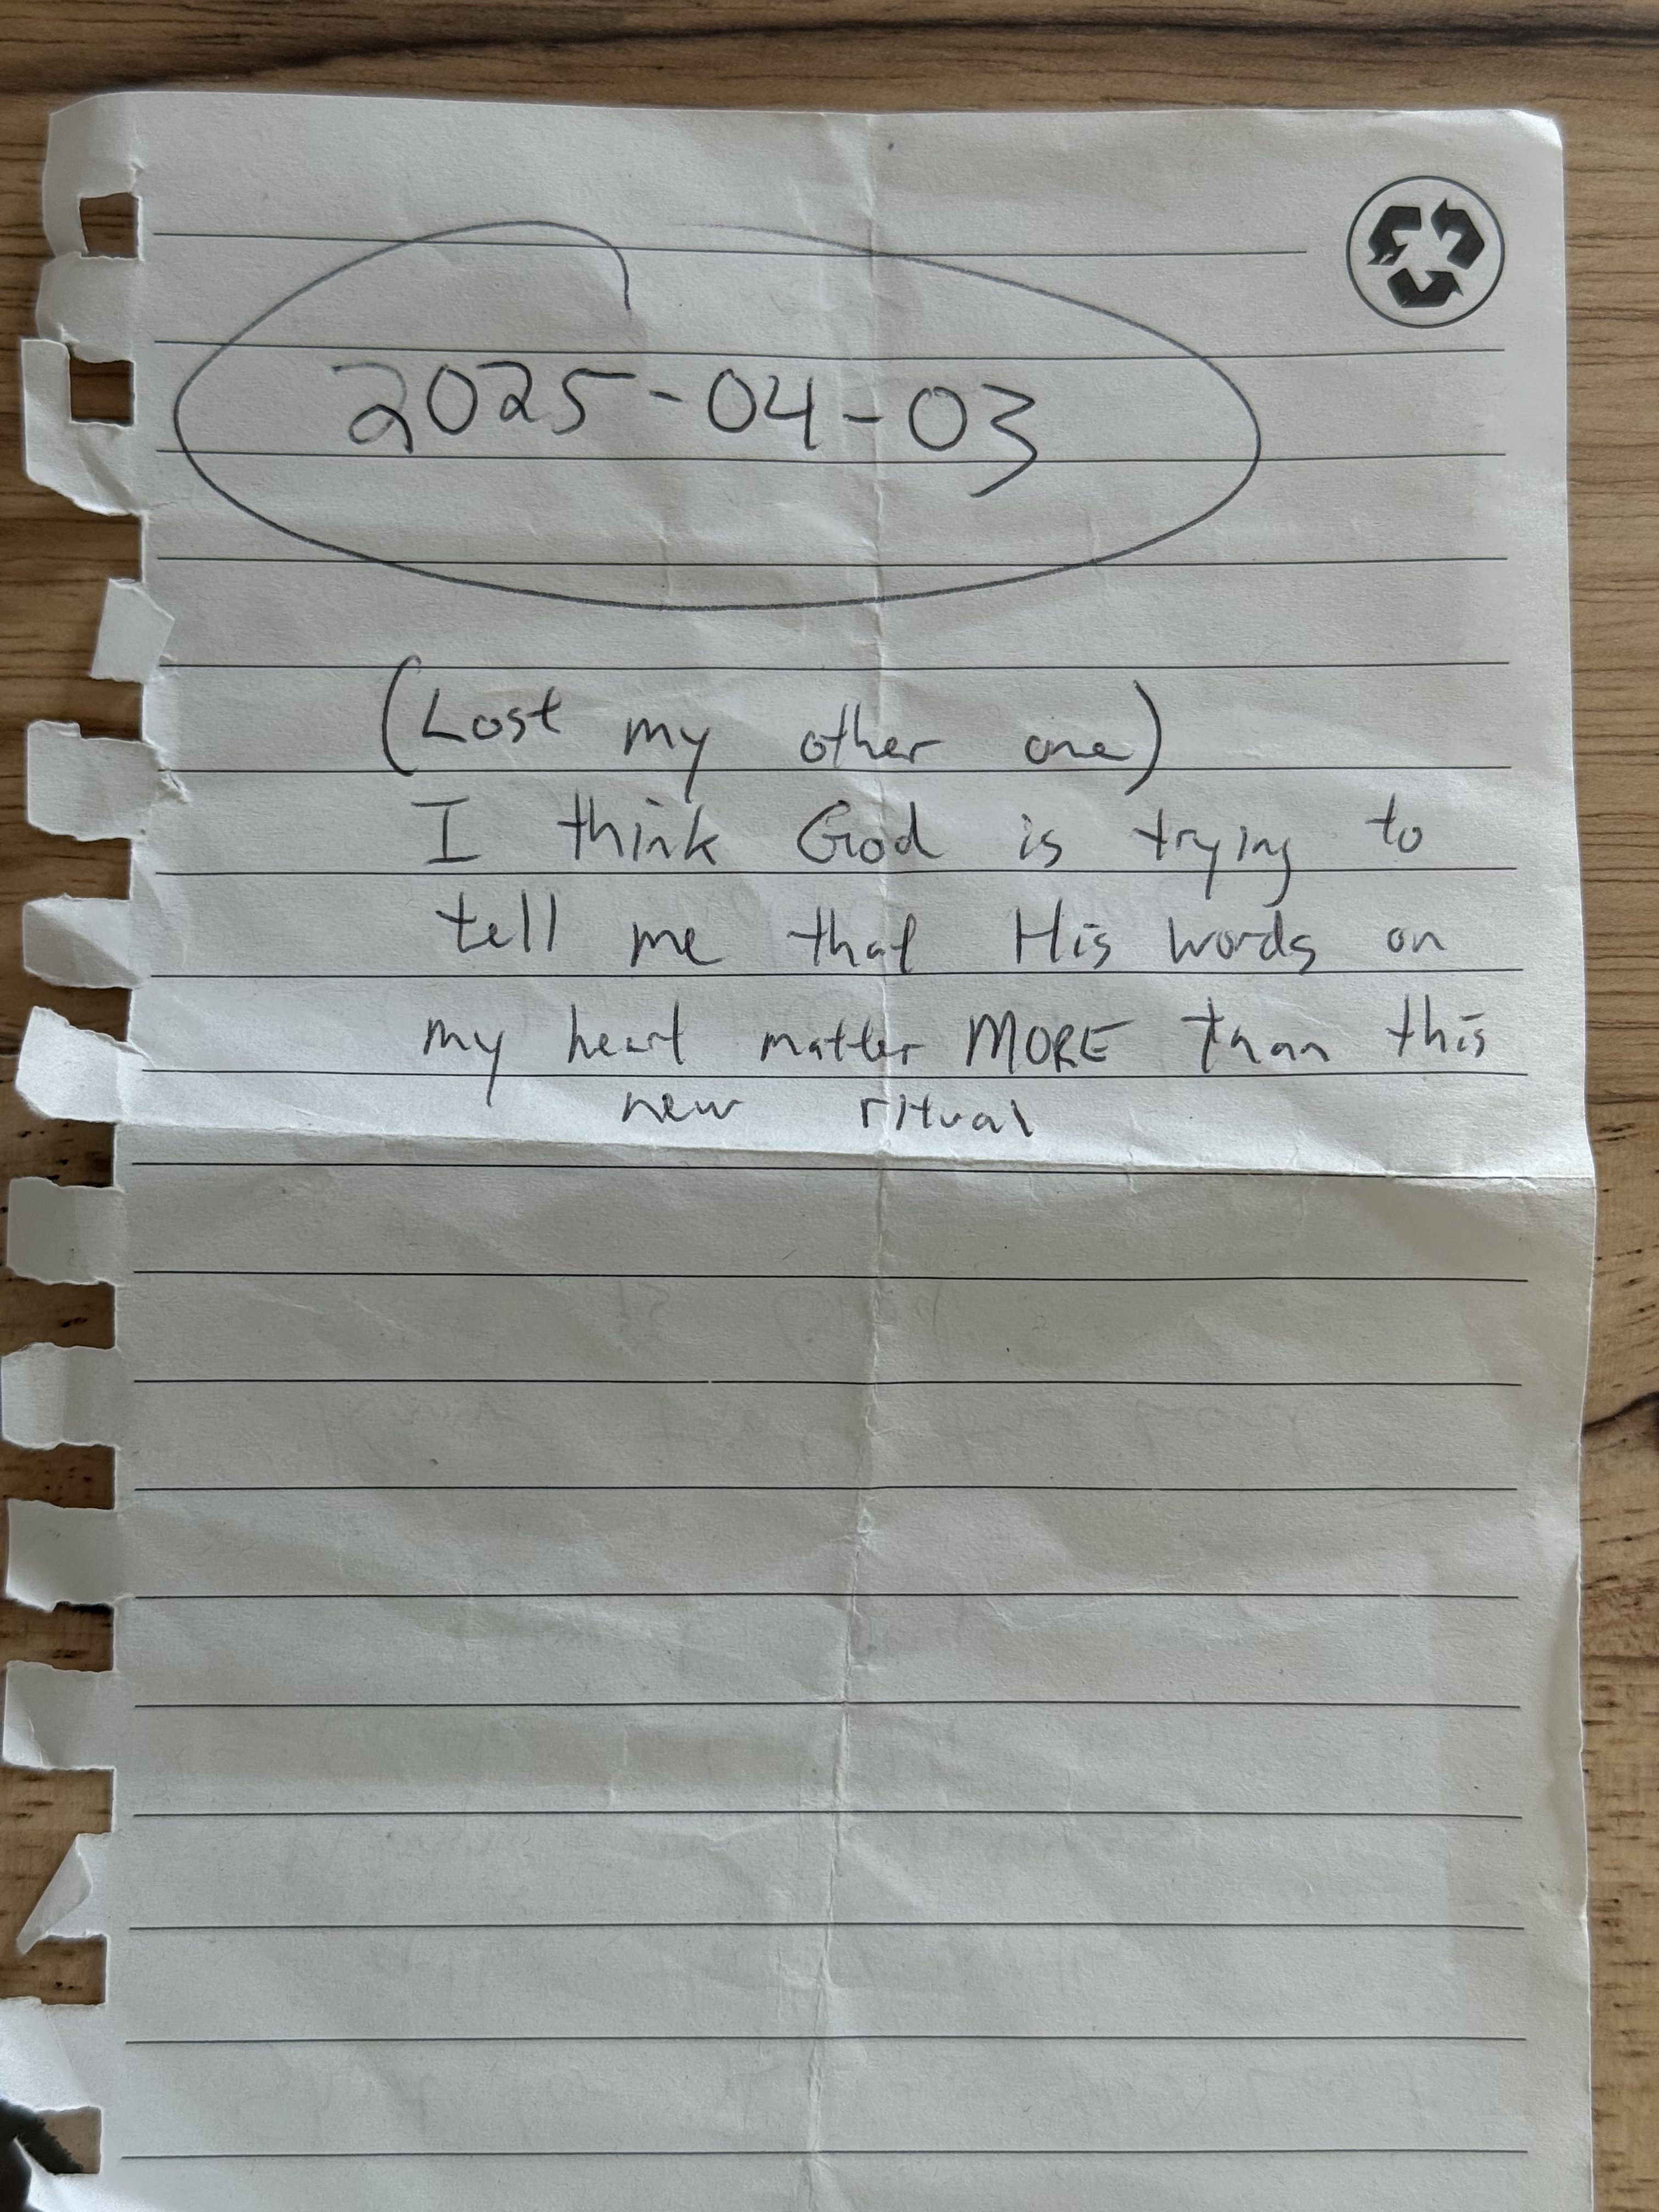 2025-04-03
(Lost my other one)
I think God is trying to
tell me that His words on
my heart matter MORE than this
new ritual